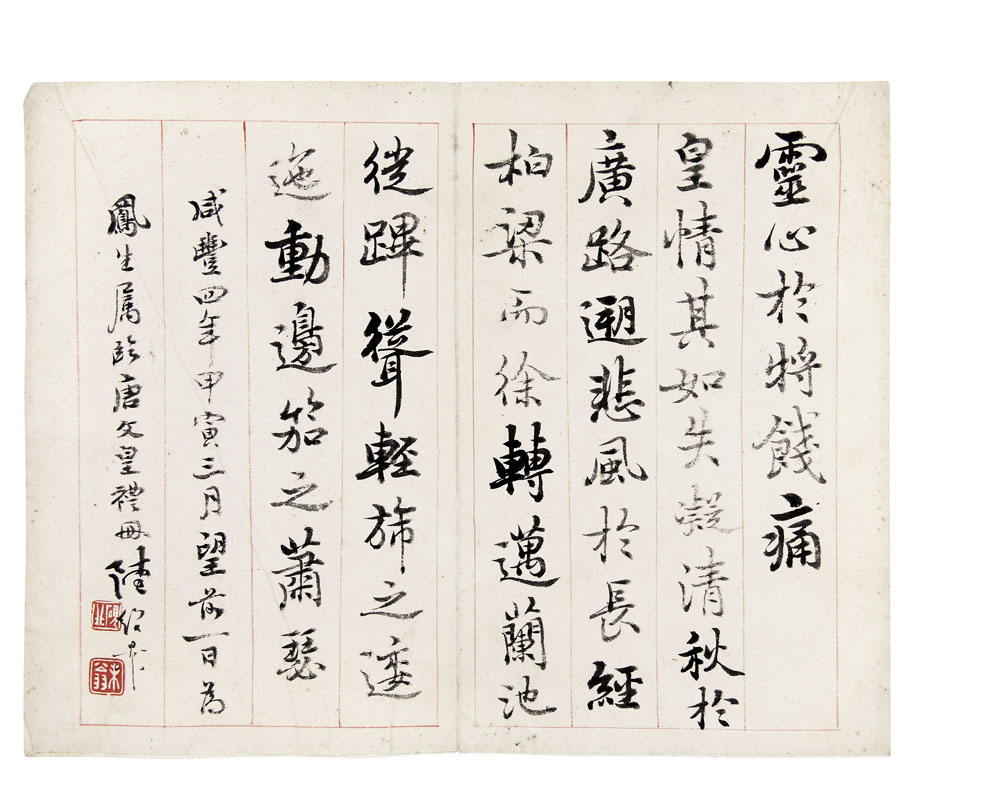 靈心於將餞痛
皇情其如失凝清秋於
廣路遡悲風於長經
柏梁而徐轉邁蘭池
徙蹕聳輕旆之逶
迤動邊笳之蕭瑟
咸豐四年甲寅三月望前一日為
鳳生属臨唐文皇禮冊陸紹